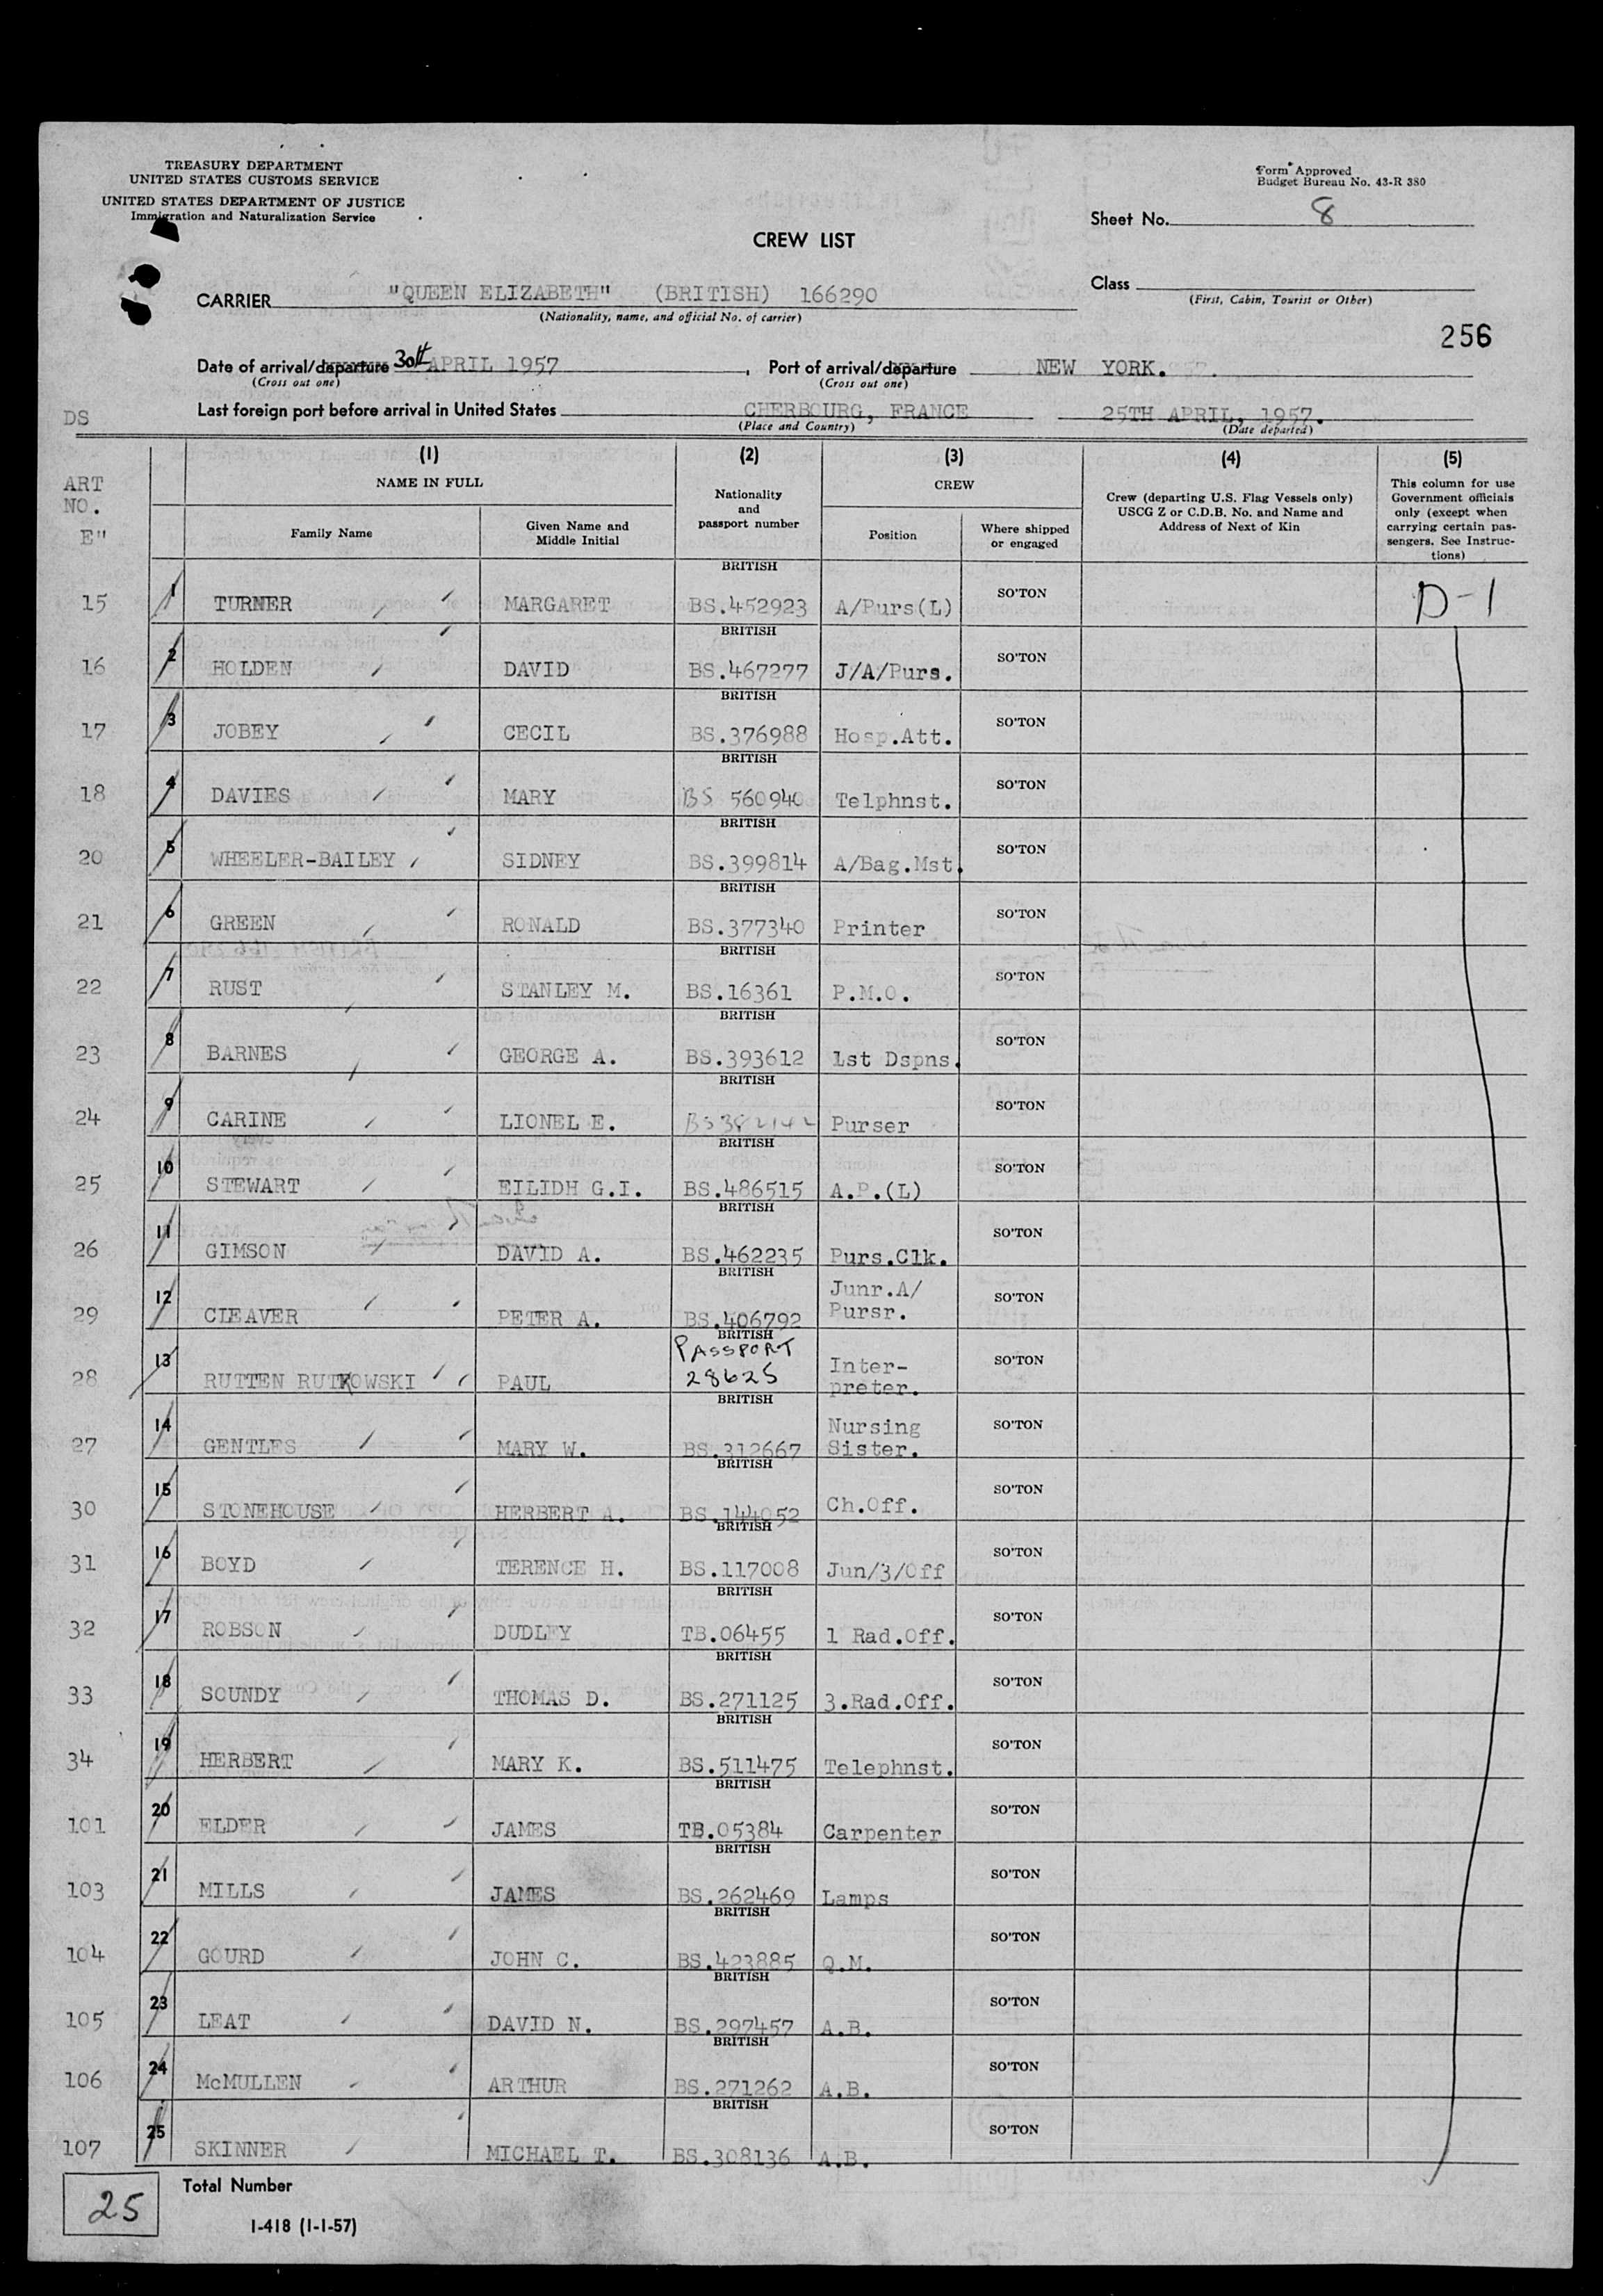 TREASURY DEPARTMENT
UNITED STATES CUSTOMS SERVICE
UNITED STATES DEPARTMENT OF JUSTICE
Immigration and Naturalization Service
Form Approved
Budget Bureau No. 43-R 380
Sheet No. 8
CREW LIST
CARRIER "QUEEN ELIZABETH" (BRITISH) 166290
(Nationality, name, and official No. of carrier)
Class
(First, Cabin, Tourist or Other)
256
Date of arrival/departure 30th APRIL 1957, Port of arrival/departure NEW YORK.
(Cross out one) (Cross out one)
DS Last foreign port before arrival in United States CHERBOURG, FRANCE 25TH APRIL, 1957.
(Place and Country) (Date departed)
ART NO. E"
(1) NAME IN FULL
Family Name
Given Name and Middle Initial
(2) Nationality and passport number
(3) CREW
Position
Where shipped or engaged
(4) Crew (departing U.S. Flag Vessels only) USCG Z or C.D.B. No. and Name and Address of Next of Kin
(5) This column for use Government officials only (except when carrying certain passengers. See Instructions)
15 1 TURNER MARGARET BRITISH BS.452923 A/Purs(L) SO'TON D-1
16 2 HOLDEN DAVID BRITISH BS.467277 J/A/Purs. SO'TON
17 3 JOBEY CECIL BRITISH BS.376988 Hosp.Att. SO'TON
18 4 DAVIES MARY BRITISH BS 560940 Telphnst. SO'TON
20 5 WHEELER-BAILEY SIDNEY BRITISH BS.399814 A/Bag.Mst. SO'TON
21 6 GREEN RONALD BRITISH BS.377340 Printer SO'TON
22 7 RUST STANLEY M. BRITISH BS.16361 P.M.O. SO'TON
23 8 BARNES GEORGE A. BRITISH BS.393612 1st Dspns. SO'TON
24 9 CARINE LIONEL E. BRITISH BS382142 Purser SO'TON
25 10 STEWART EILIDH G.I. BRITISH BS.486515 A.P.(L) SO'TON
26 11 GIMSON DAVID A. BRITISH BS.462235 Purs.Clk. SO'TON
29 12 CLEAVER PETER A. BRITISH BS.406792 Junr.A/Pursr. SO'TON
28 13 RUTTEN RUTKOWSKI PAUL BRITISH PASSPORT 28625 Inter-preter. SO'TON
27 14 GENTLES MARY W. BRITISH BS.312667 Nursing Sister. SO'TON
30 15 STONEHOUSE HERBERT A. BRITISH BS.144052 Ch.Off. SO'TON
31 16 BOYD TERENCE H. BRITISH BS.117008 Jun/3/Off SO'TON
32 17 ROBSON DUDLEY BRITISH TB.06455 1 Rad.Off. SO'TON
33 18 SOUNDY THOMAS D. BRITISH BS.271125 3.Rad.Off. SO'TON
34 19 HERBERT MARY K. BRITISH BS.511475 Telephnst. SO'TON
101 20 ELDER JAMES BRITISH TB.05384 Carpenter SO'TON
103 21 MILLS JAMES BRITISH BS.262469 Lamps SO'TON
104 22 GOURD JOHN C. BRITISH BS.423885 Q.M. SO'TON
105 23 LEAT DAVID N. BRITISH BS.297457 A.B. SO'TON
106 24 McMULLEN ARTHUR BRITISH BS.271262 A.B. SO'TON
107 25 SKINNER MICHAEL T. BRITISH BS.308136 A.B. SO'TON
25 Total Number
I-418 (1-1-57)